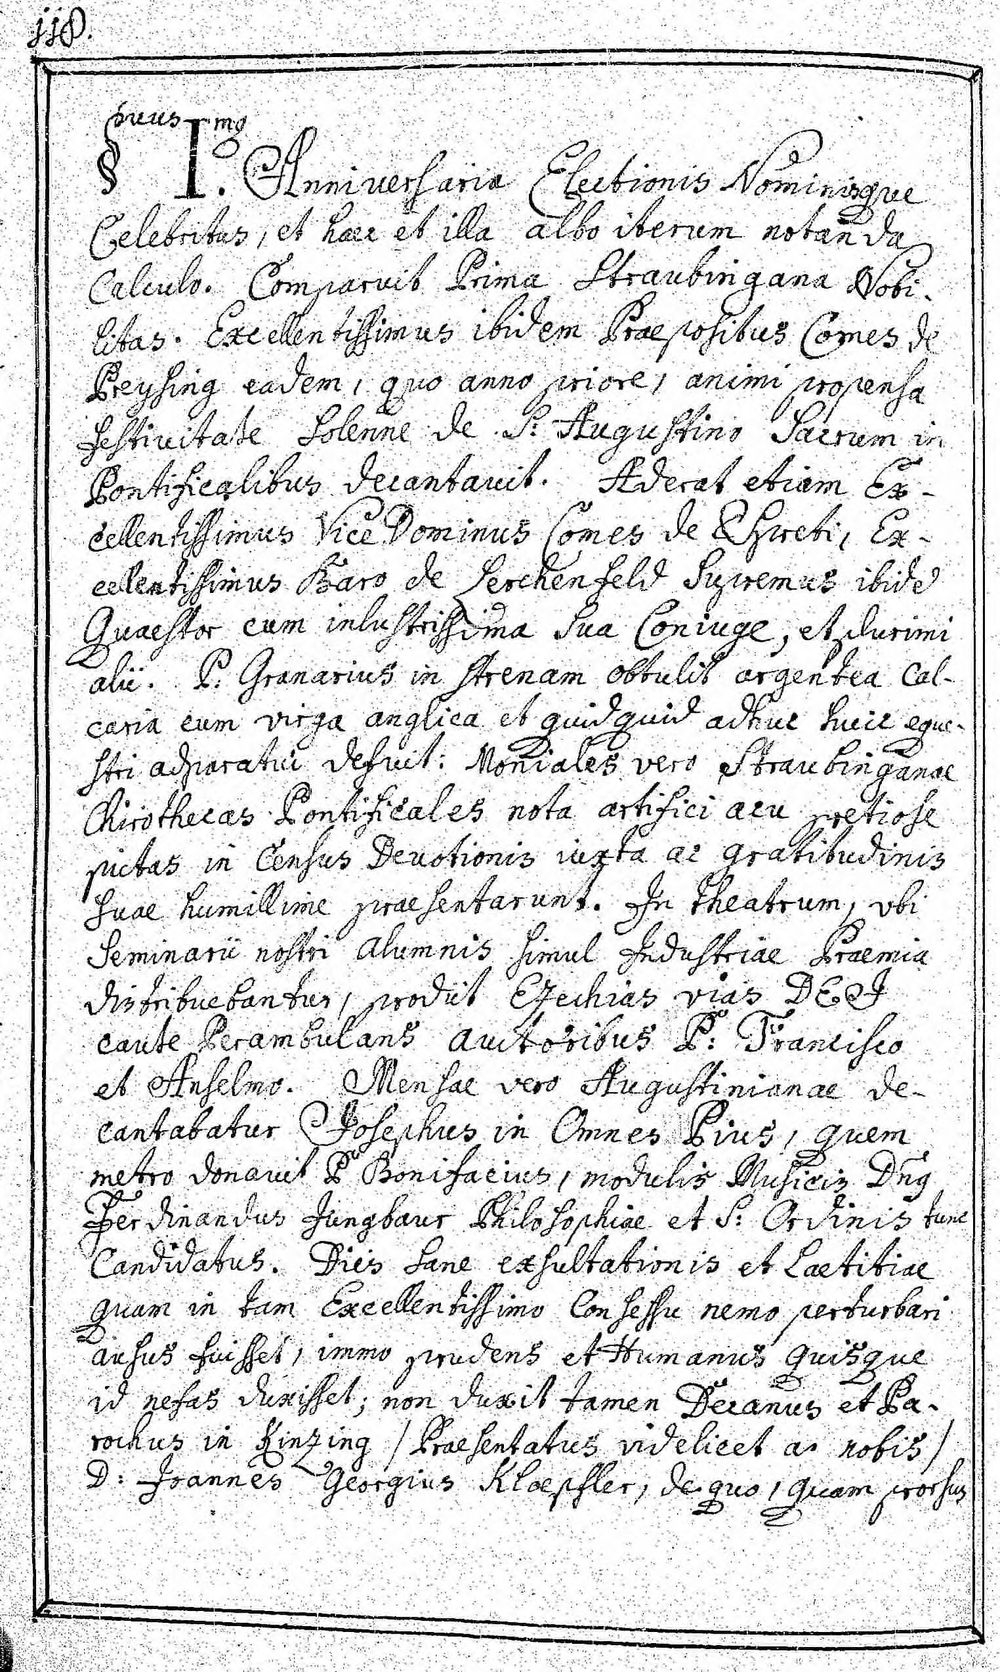 118.
§phus I.mo Anniversaria Electionis Nominisque
Celebritas, et haec et illa albo iterum notanda
Calculo. Comparuit Prima Straubingana Nobi-
litas. Excellentissimus ibidem Praepositus Comes de
Preysing eadem, quo anno priore, animi propensa
festivitate Solenne de S: Augustino Sacrum in
Pontificalibus decantavit. Aderat etiam Ex-
cellentissimus Vice Dominus Comes de Spreti, Ex-
cellentissimus Baro de Lerchenfeld Supremus ibidē
Quaestor cum inlustrissima Sua Coniuge, et plurimi
alii. P: Granarius in strenam obtulit argentea Cal-
caria cum virga anglica et quidquid adhuc huic eque-
stri adparatui defuit: Moniales vero Straubinganae
Chirothecas Pontificales nota artifici acu pretiose
pictas in Census Devotionis iuxta ac gratitudinis
suae humillime praesentarunt. In theatrum, vbi
Seminarii nostri Alumnis simul Industriae Praemia
distribuebantur, prodiit Ezechias vias DEI
caute Perambulans auctoribus P: Francisco
et Anselmo. Mensae vero Augustinianae de-
cantabatur Josephus in Omnes Pius, quem
metro donavit P Bonifacius, modulis Musicis Dn9
Ferdinandus Jungbaur Philosophiae et S: Ordinis tunc
Candidatus. Dies sane exsultationis et Laetitiae
quam in tam Excellentissimo Consessu nemo perturbari
ausus fuisset, immo prudens et Humanus quisque
id nefas duxisset; non duxit tamen Decanus et Pa-
rochus in Kinzing / Praesentatus videlicet a nobis /
D: Joannes Georgius Kloepfler, de quo, quam prorsus